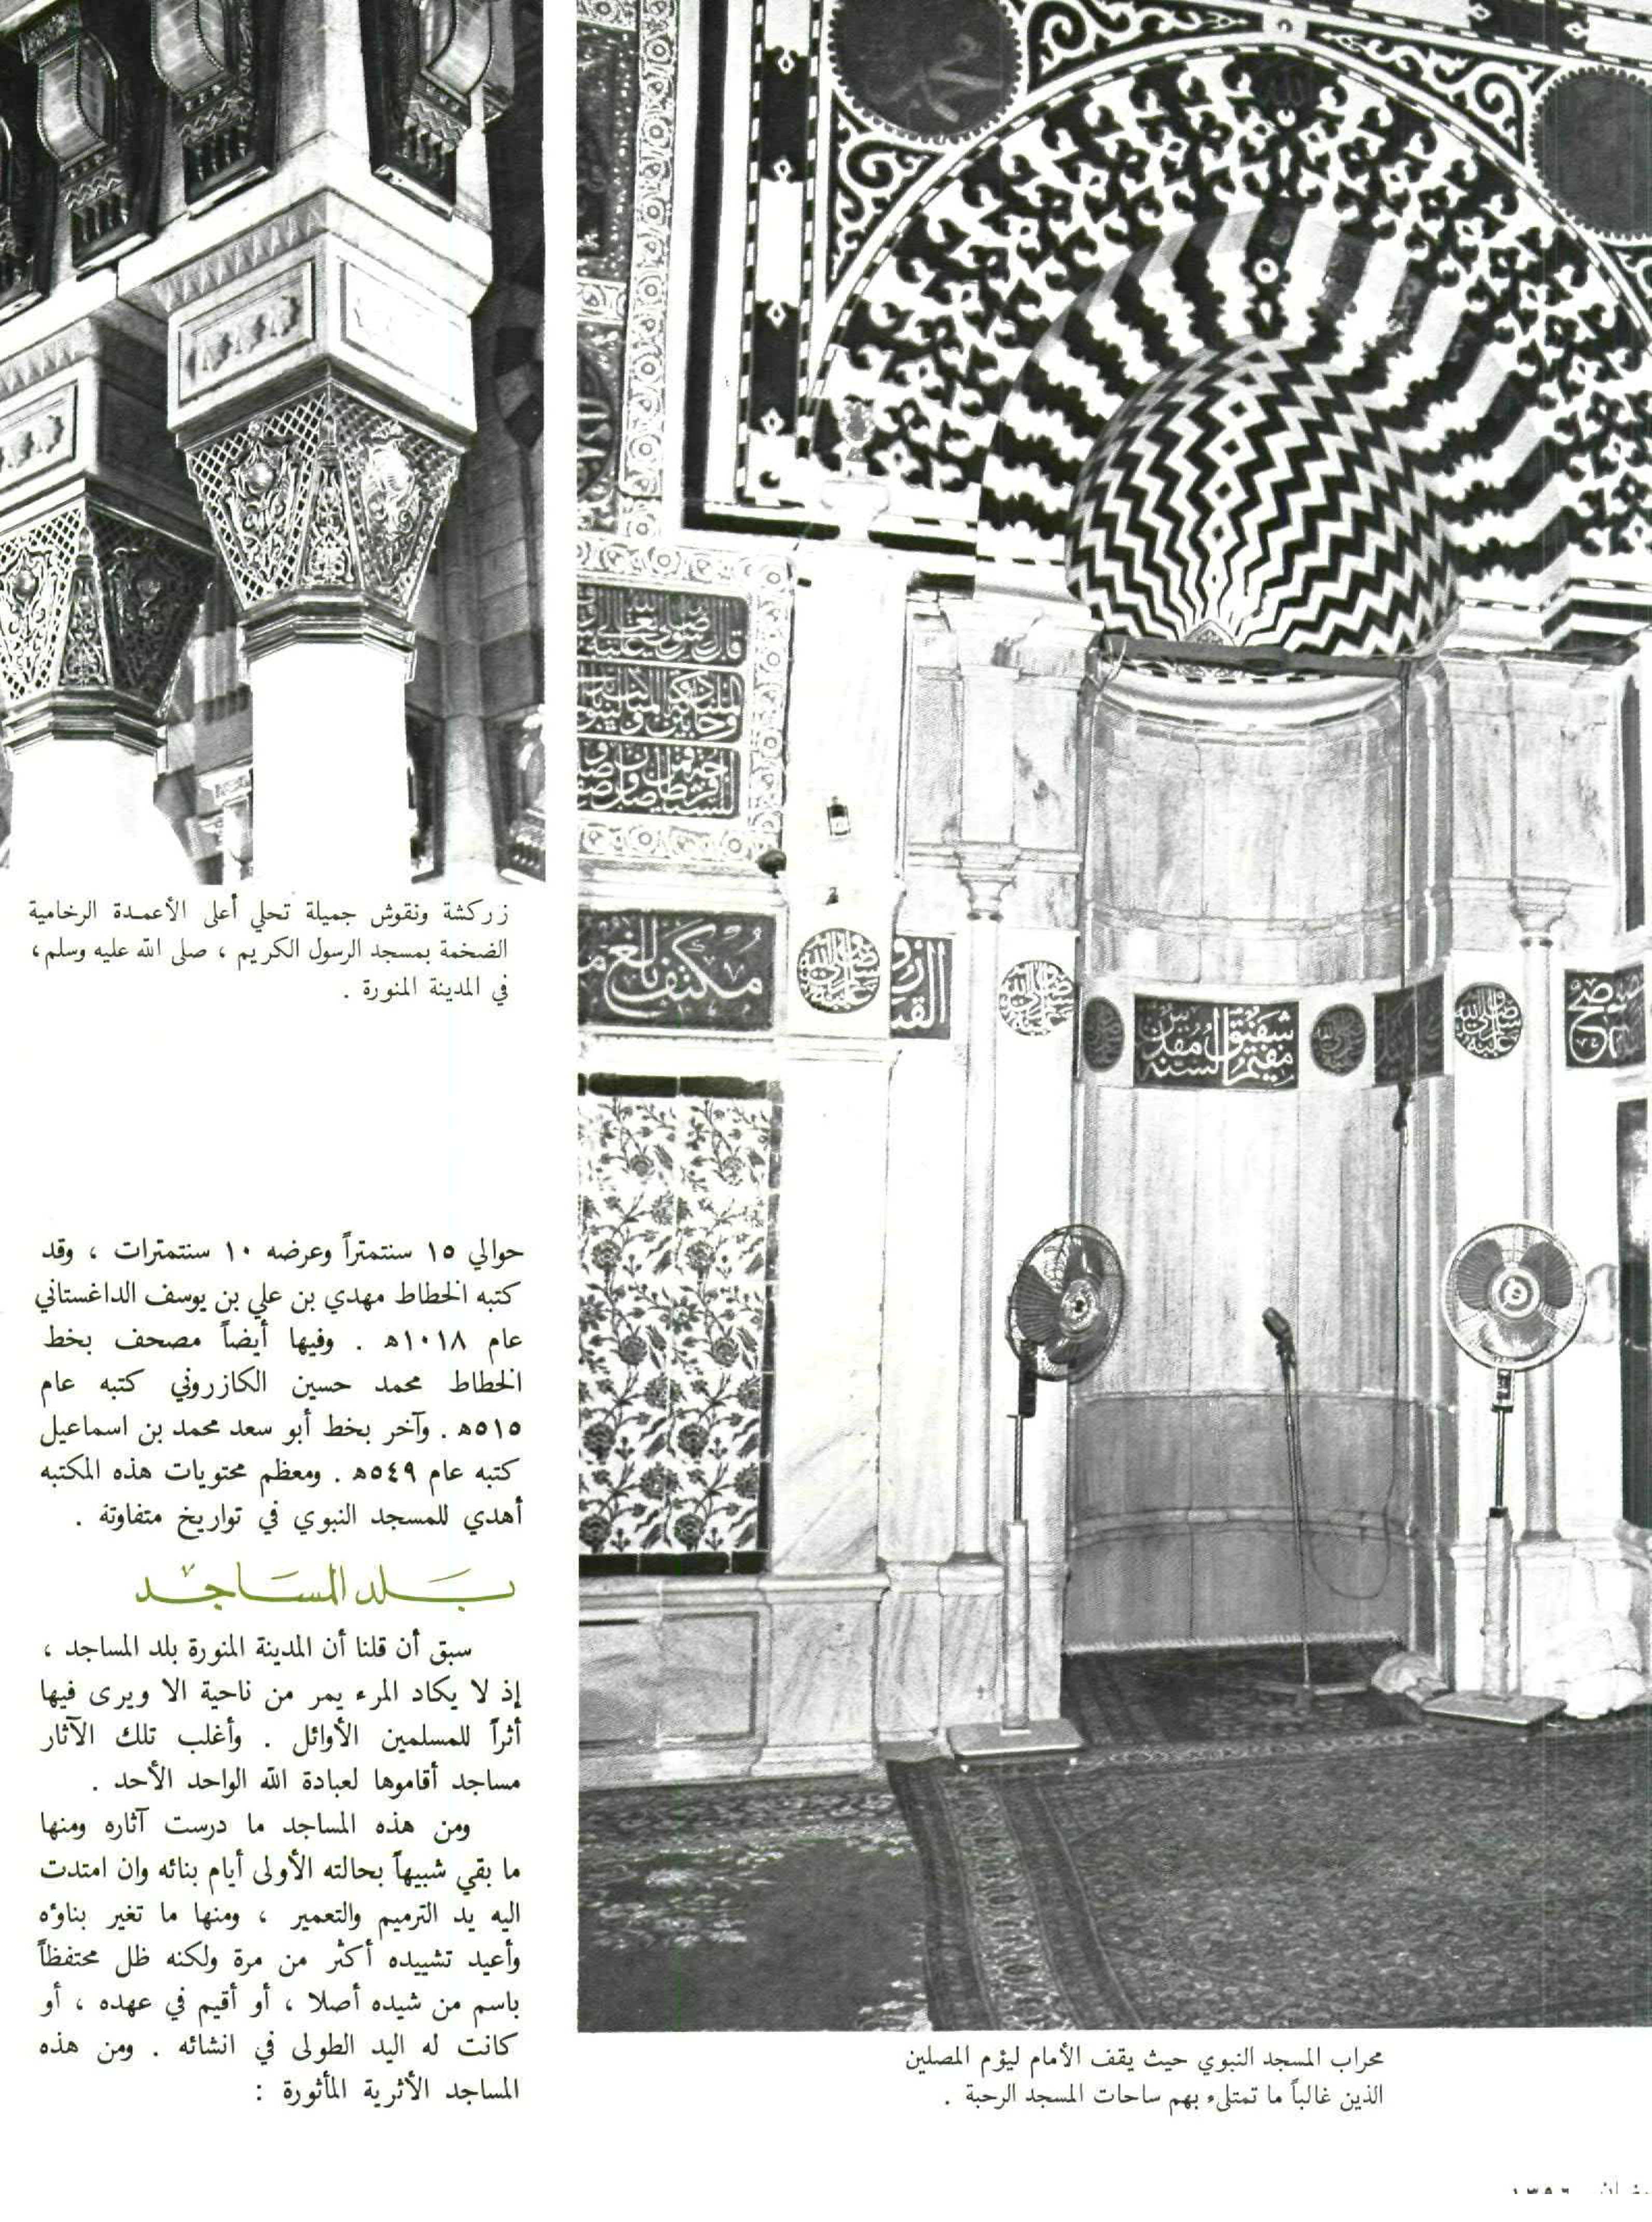 زركشة ونقوش جميلة تحلي أعلى الأعمدة الرخامية
الضخمة بمسجد الرسول الكريم ، صلى الله عليه وسلم،
في المدينة المنورة .
حوالي ١٥ سنتمتراً وعرضه ١٠ سنتمترات ، وقد
كتبه الخطاط مهدي بن علي بن يوسف الداغستاني
عام ١٠١٨ه . وفيها أيضاً مصحف بخط
الخطاط محمد حسين الكازروني كتبه عام
٥١٥ه . وآخر بخط أبو سعد محمد بن اسماعيل
كتبه عام ٥٤٩ه . ومعظم محتويات هذه المكتبه
أهدي للمسجد النبوي في تواريخ متفاوتة .
بلد المساجد
سبق أن قلنا أن المدينة المنورة بلد المساجد ،
إذ لا يكاد المرء يمر من ناحية الا ويرى فيها
أثراً للمسلمين الأوائل . وأغلب تلك الآثار
مساجد أقاموها لعبادة الله الواحد الأحد .
ومن هذه المساجد ما درست آثاره ومنها
ما بقي شبيهاً بحالته الأولى أيام بنائه وان امتدت
اليه يد الترميم والتعمير ، ومنها ما تغير بناؤه
وأعيد تشييده أكثر من مرة ولكنه ظل محتفظاً
باسم من شيده أصلا ، أو أقيم في عهده ، أو
كانت له اليد الطولى في انشائه . ومن هذه
المساجد الأثرية المأثورة :
مكتف بالغ
صلى الله عليه
صلى الله عليه
شفيق مقدس
مقيم السنة
صلى الله عليه
محراب المسجد النبوي حيث يقف الأمام ليؤم المصلين
الذين غالباً ما تمتلىء بهم ساحات المسجد الرحبة .